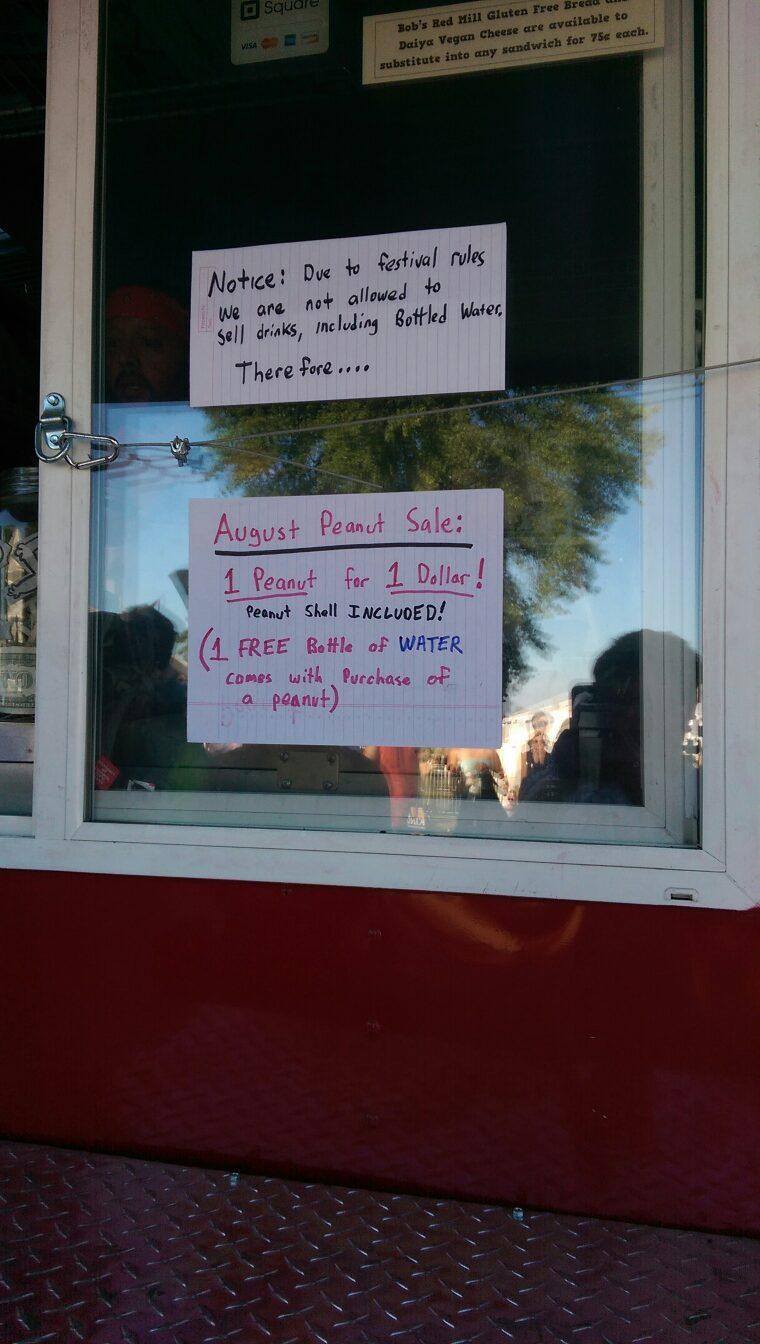 Square
VISA
Bob's Red Mill Gluten Free Bread and
Daiya Vegan Cheese are available to
substitute into any sandwich for 75¢ each.
Notice: Due to festival rules
we are not allowed to
sell drinks, including Bottled Water.
Therefore....
August Peanut Sale:
1 Peanut for 1 Dollar!
Peanut Shell INCLUDED!
(1 FREE Bottle of WATER
comes with Purchase of
a peanut)